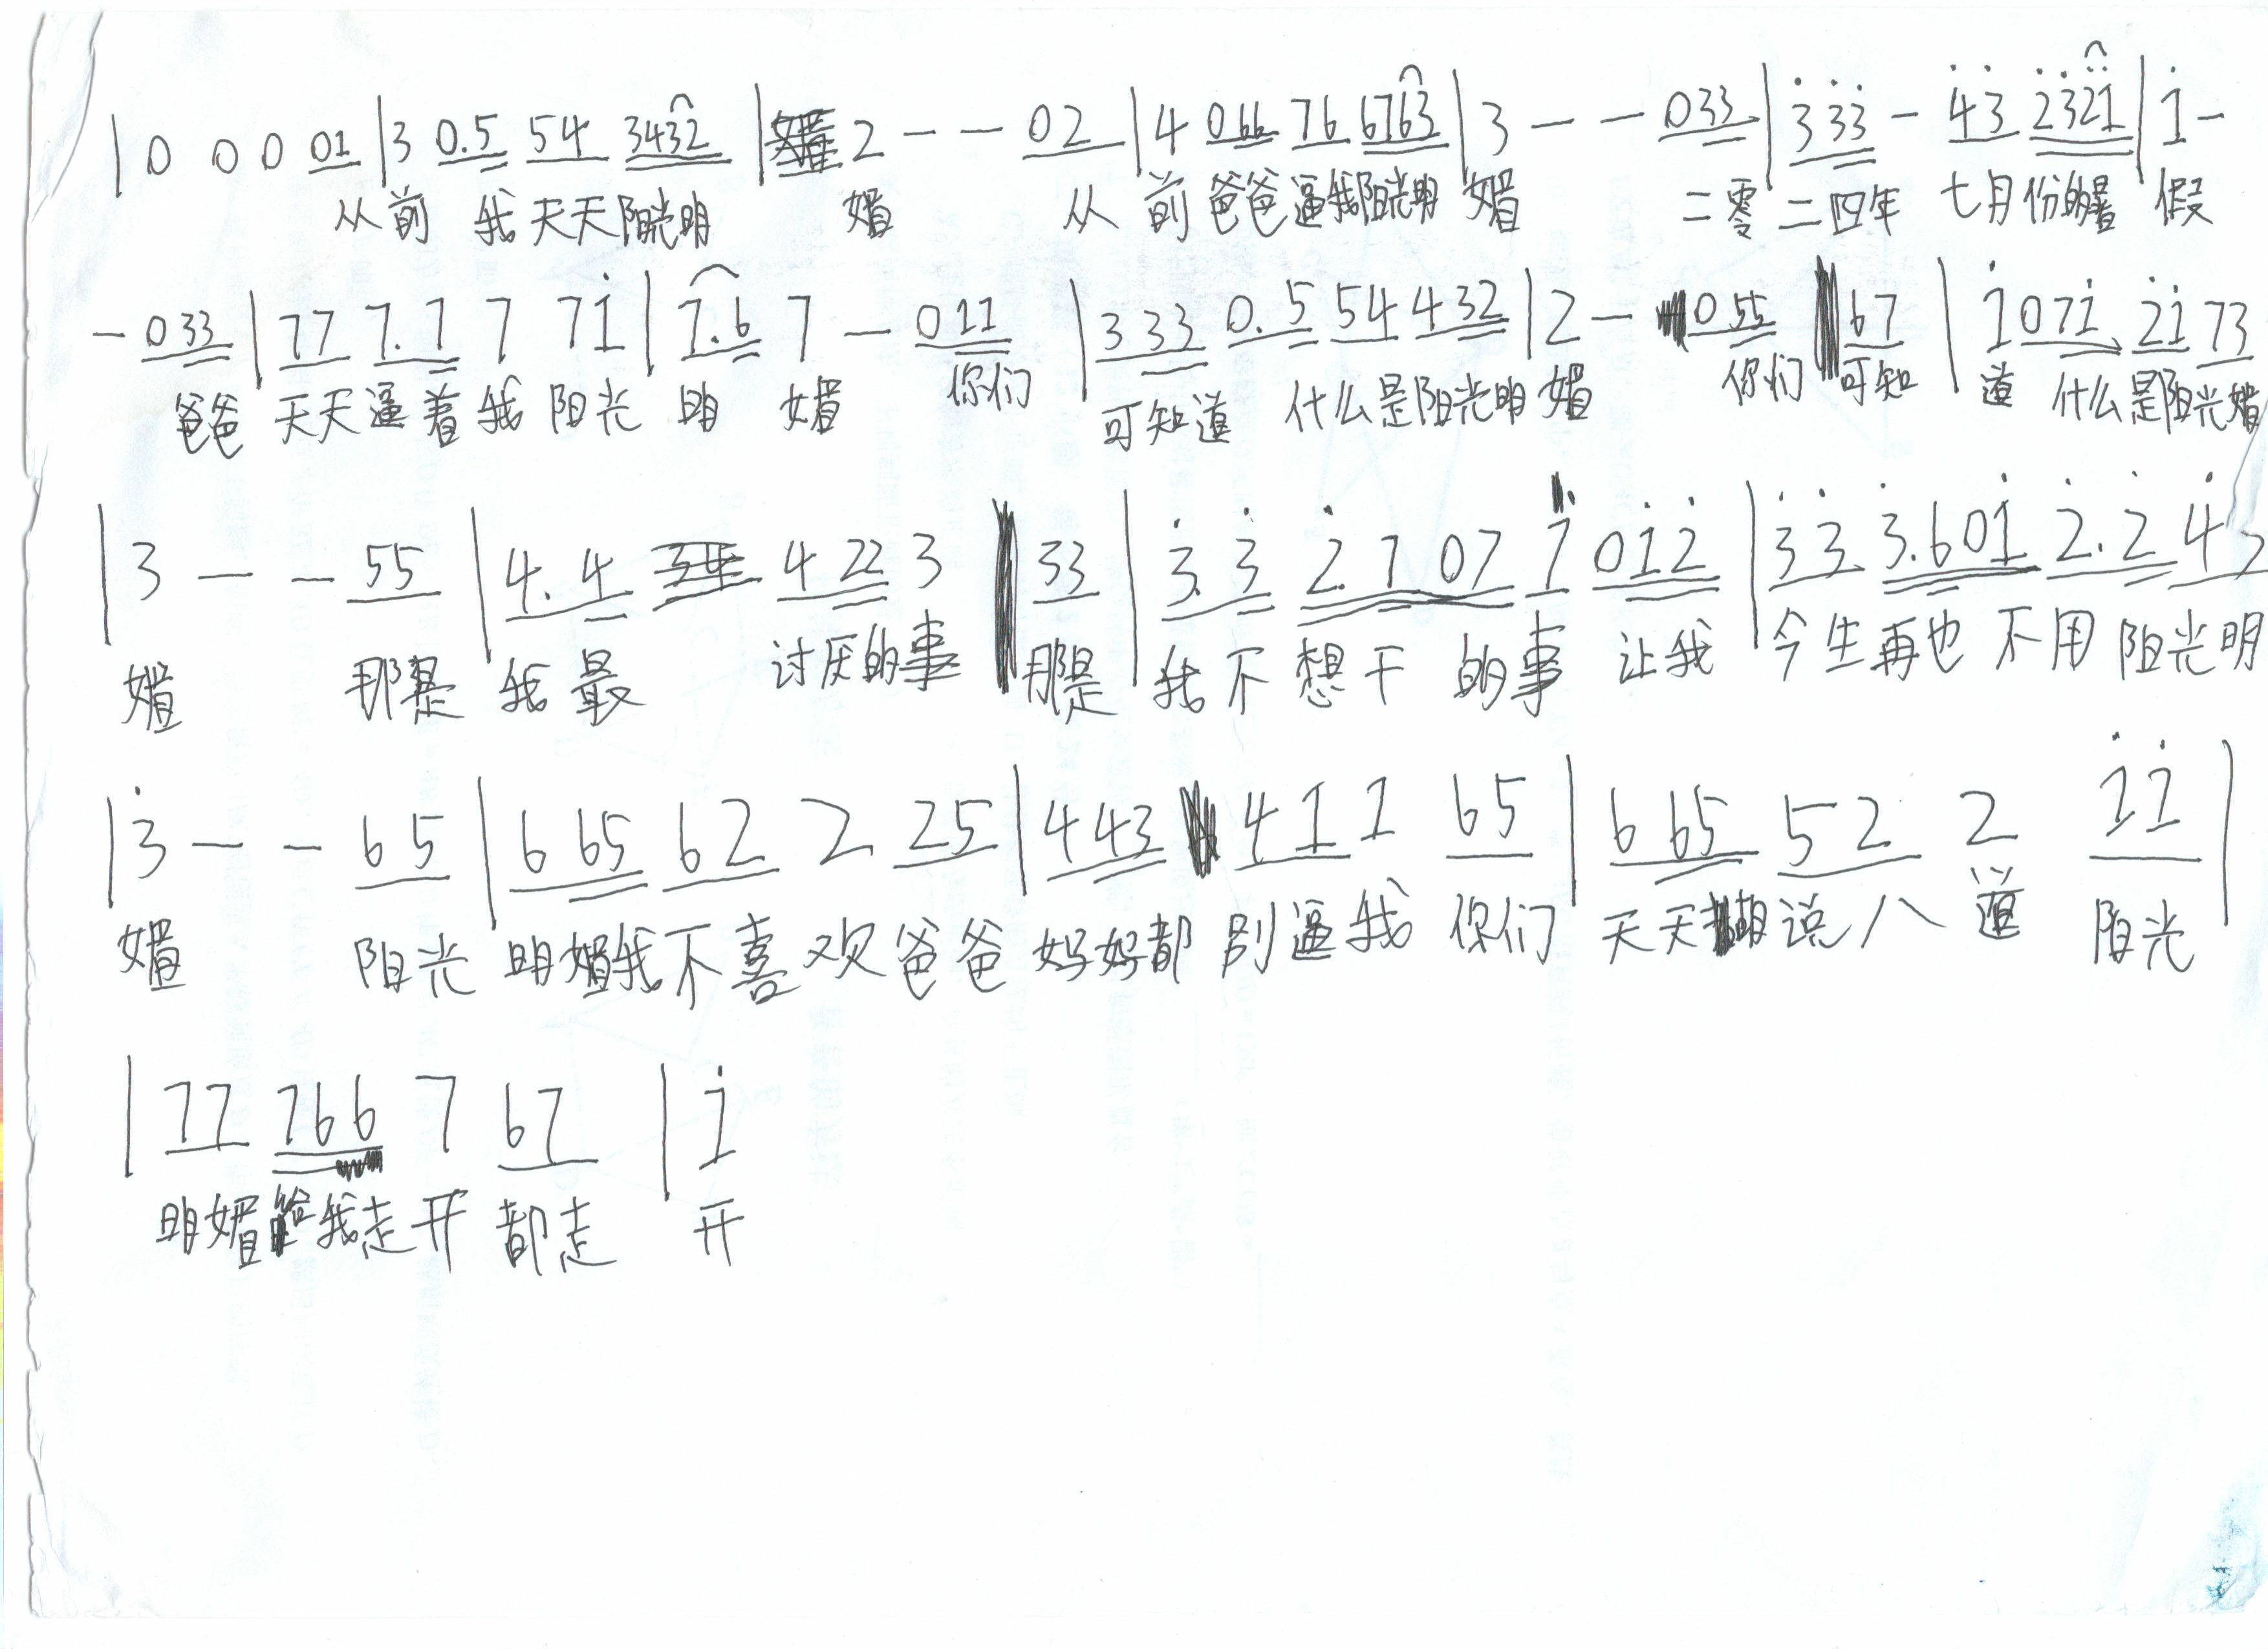 | 0 0 0 01 | 3 0.5 54 3432 | 2 — — 02 | 4 066 76 6763 | 3 — — 033 | 3̇3̇3̇ — 4̇3̇ 2̇3̇2̇1̇ | 1̇ —
从前 我天天阳光明 媚 从前爸爸逼我阳光明 媚 二零二四年 七月份的暑假
— 033 | 77 7.7 7 71̇ | 7.6 7 — 011 | 333 0.5 54 432 | 2 — 055 67 | 1̇ 071̇ 2̇1̇ 73
爸爸 天天逼着我阳光 明 媚 你们 可知道 什么是阳光明媚 你们 可知 道 什么是阳光媚
| 3 — — 55 | 4.4 4 22 3 33 | 3̇.3̇ 2̇.7 07 1̇ 01̇2̇ | 3̇3̇ 3̇.601̇ 2̇.2̇ 4̇
媚 那是 我最 讨厌的事 那是 我不想干 的事 让我 今生再也不用阳光明
| 3̇ — — 65 | 6 65 62 2 25 | 443 41 1 65 | 6 65 52 2 1̇1̇ |
媚 阳光 明媚我不喜欢爸爸 妈妈都别逼我 你们 天天胡说八道 阳光
| 77 766 7 67 | 1̇
明媚给我走开 都走 开